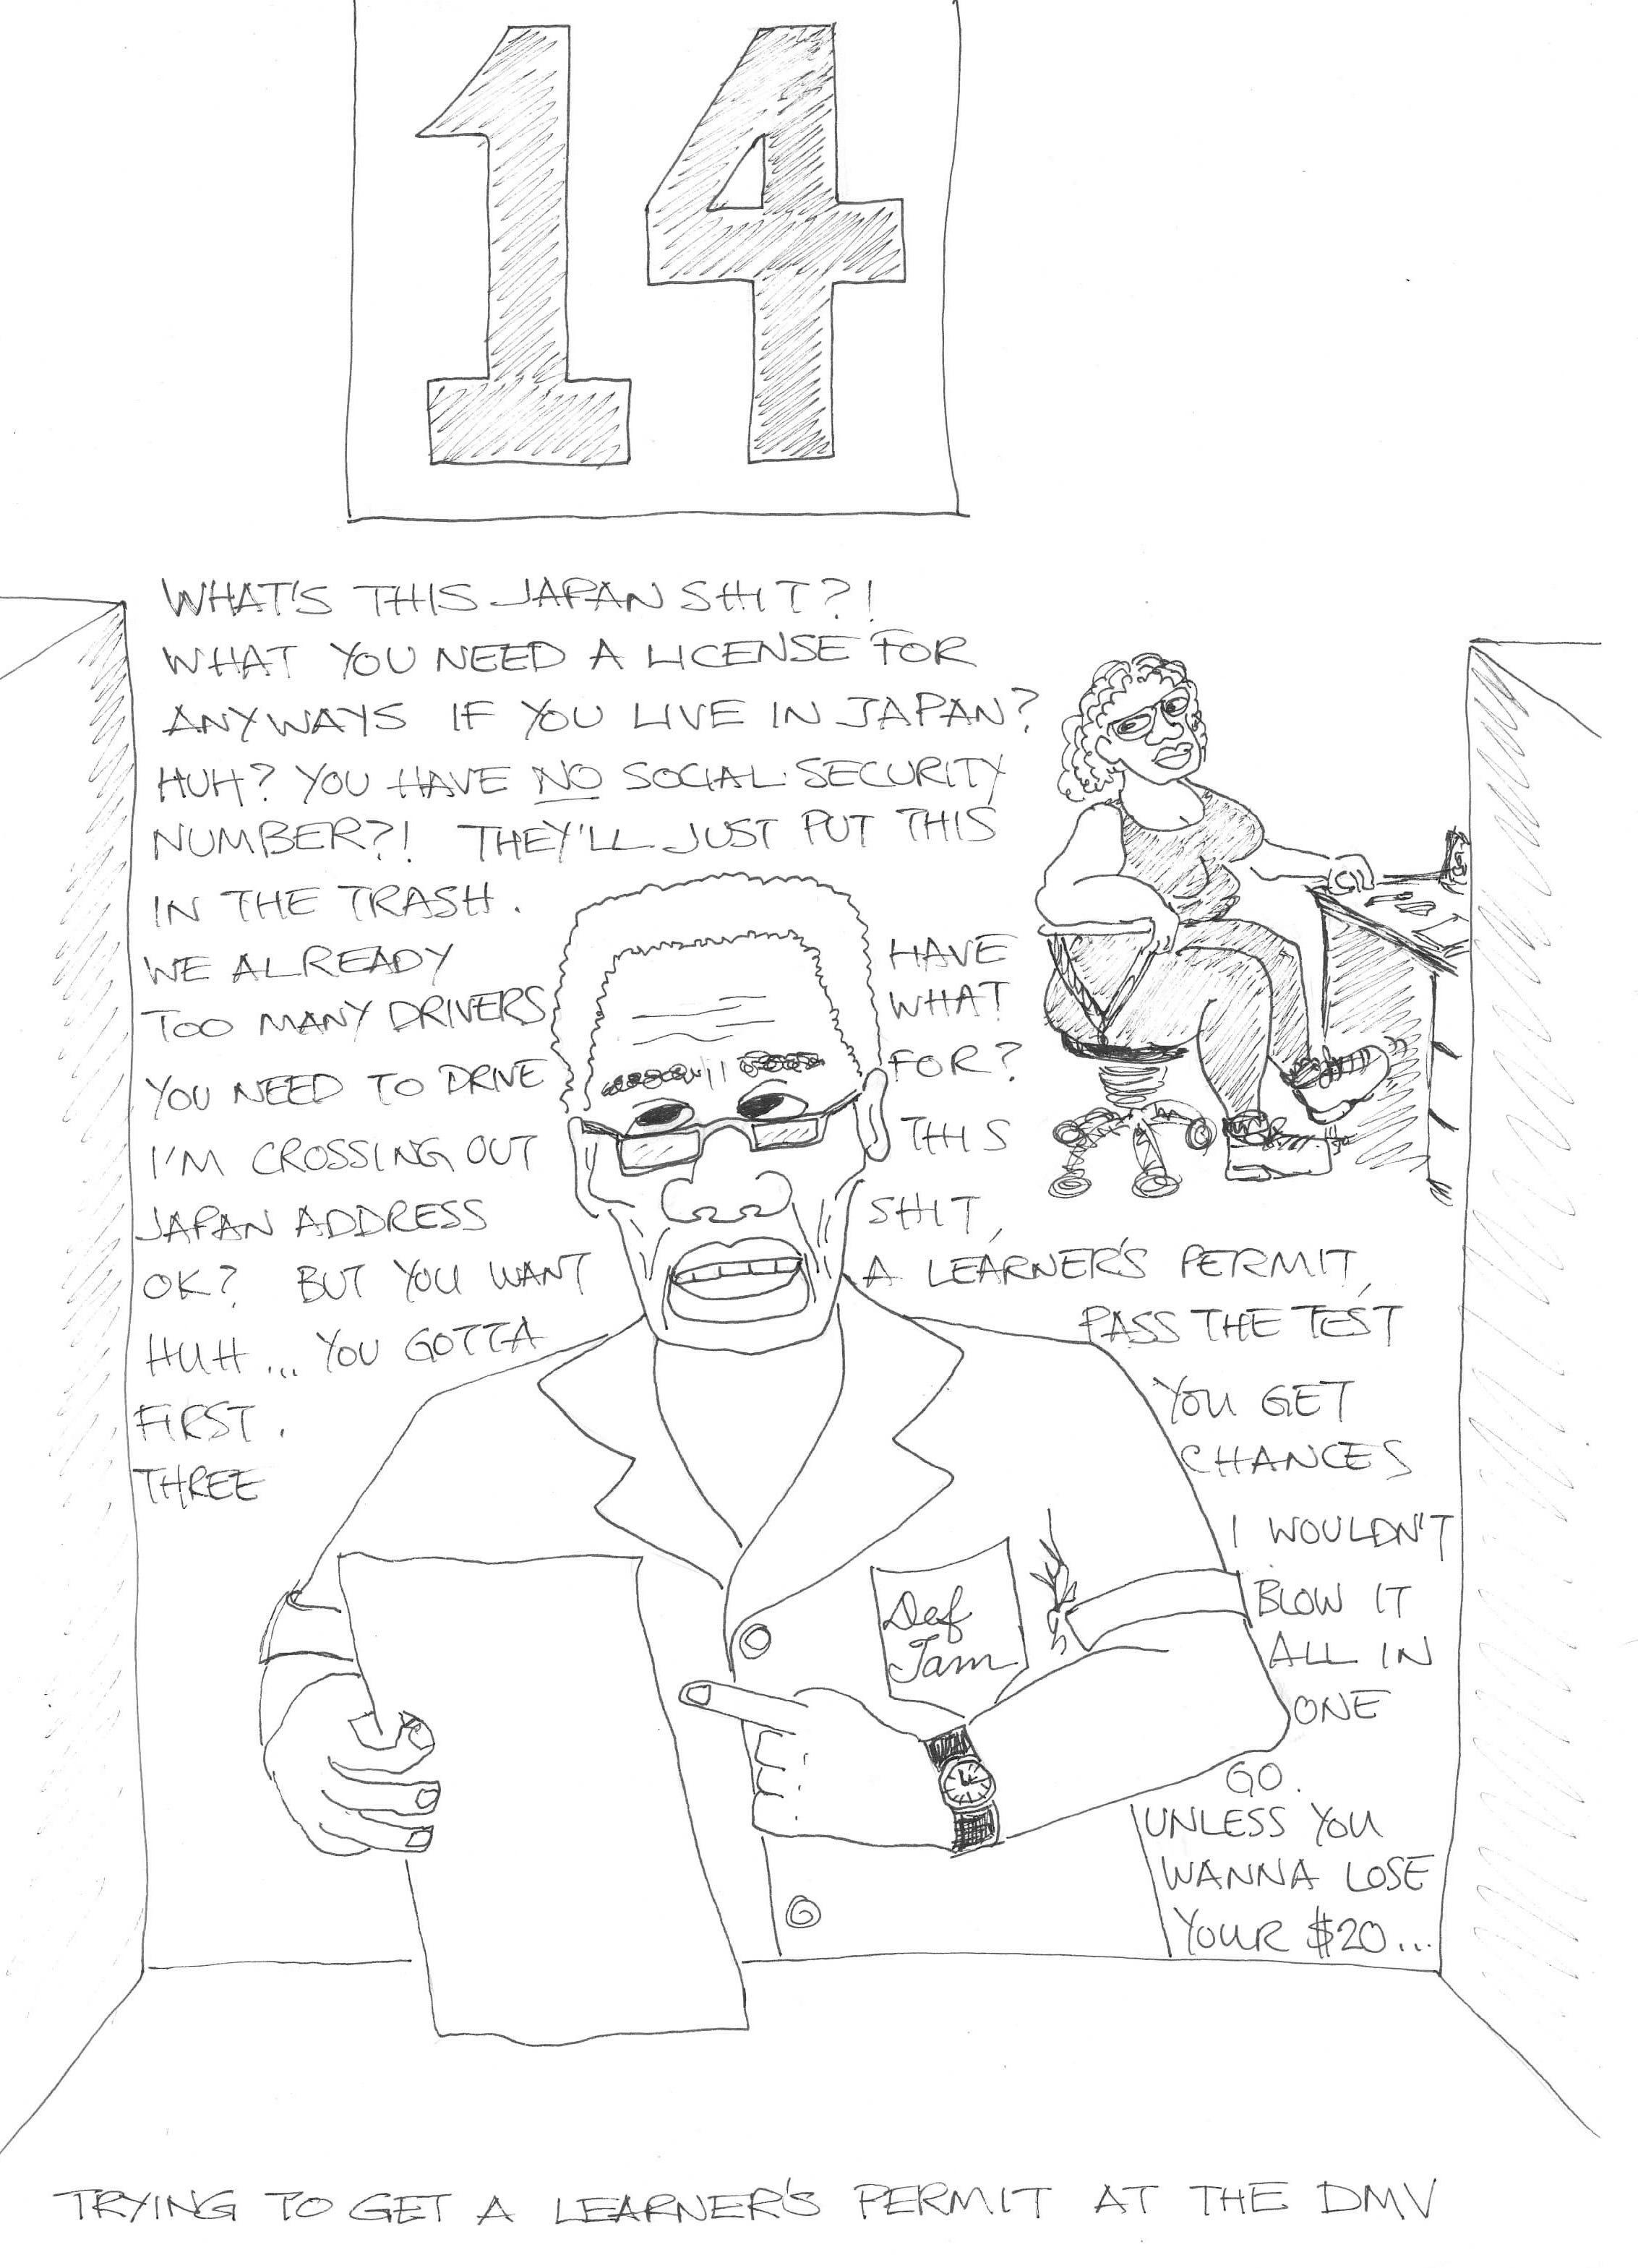 14
WHAT'S THIS JAPAN SHIT?!
WHAT YOU NEED A LICENSE FOR
ANYWAYS IF YOU LIVE IN JAPAN?
HUH? YOU HAVE NO SOCIAL SECURITY
NUMBER?! THEY'LL JUST PUT THIS
IN THE TRASH.
WE ALREADY HAVE
TOO MANY DRIVERS WHAT
YOU NEED TO DRIVE FOR?
I'M CROSSING OUT THIS
JAPAN ADDRESS SHIT,
OK? BUT YOU WANT A LEARNER'S PERMIT,
HUH... YOU GOTTA PASS THE TEST
FIRST. YOU GET
THREE CHANCES
I WOULDN'T
BLOW IT
ALL IN
ONE
GO.
UNLESS YOU
WANNA LOSE
YOUR $20...
Def
Jam
TRYING TO GET A LEARNER'S PERMIT AT THE DMV